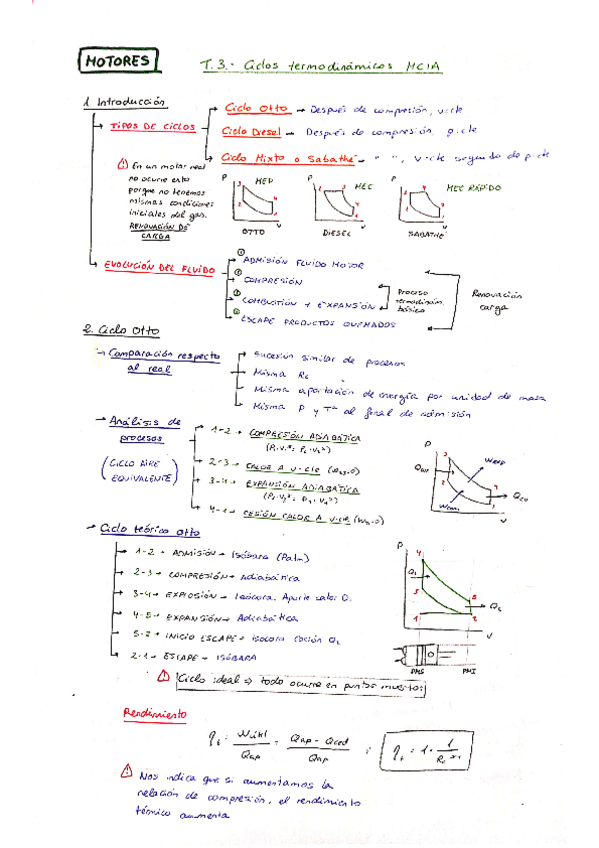 MOTORES
T.3.- Ciclos termodinámicos MCIA
1. Introducción
TIPOS DE CICLOS
Ciclo Otto → Después de compresión, v:cte
Ciclo Diesel → Después de compresión, p:cte
Ciclo Mixto o Sabathé → " ", v:cte seguido de p:cte
⚠ En un motor real
no ocurre esto
porque no tenemos
mismas condiciones
iniciales del gas.
RENOVACIÓN DE
CARGA
P MEP V
OTTO
P MEC V
DIESEL
P MEC RÁPIDO V
SABATHÉ
EVOLUCIÓN DEL FLUIDO
① ADMISIÓN FLUIDO MOTOR
② COMPRESIÓN
③ COMBUSTIÓN + EXPANSIÓN
④ ESCAPE PRODUCTOS QUEMADOS
Proceso
termodinám.
básico
Renovación
carga
2. Ciclo Otto
→ Comparación respecto
al real
Sucesión similar de procesos
Misma Rc
Misma aportación de energía por unidad de masa
Misma P y Tª al final de admisión
→ Análisis de
procesos
(CICLO AIRE
EQUIVALENTE)
1-2 → COMPRESIÓN ADIABÁTICA
2-3 → CALOR A V:CTE
3-4 → EXPANSIÓN ADIABÁTICA
4-1 → CESIÓN CALOR A V:CTE
P
Wexp
V
→ Ciclo teórico Otto
1-2 → ADMISIÓN → Isóbara (Patm)
2-3 → COMPRESIÓN → Adiabática
3-4 → EXPLOSIÓN → Isócora. Aporte calor Q1
4-5 → EXPANSIÓN → Adiabática
5-2 → INICIO ESCAPE → Isócora cesión Q2
2-1 → ESCAPE → ISÓBARA
P
4
Q1
3
5
Q2
1
2
V
PMS PMI
⚠ Ciclo ideal ⇒ todo ocurre en puntos muertos
Rendimiento
ηt = Wútil / Qap = Qap - Qced / Qap ; ηt = 1 - 1 / Rc^γ-1
⚠ Nos indica que si aumentamos la
relación de compresión, el rendimiento
térmico aumenta